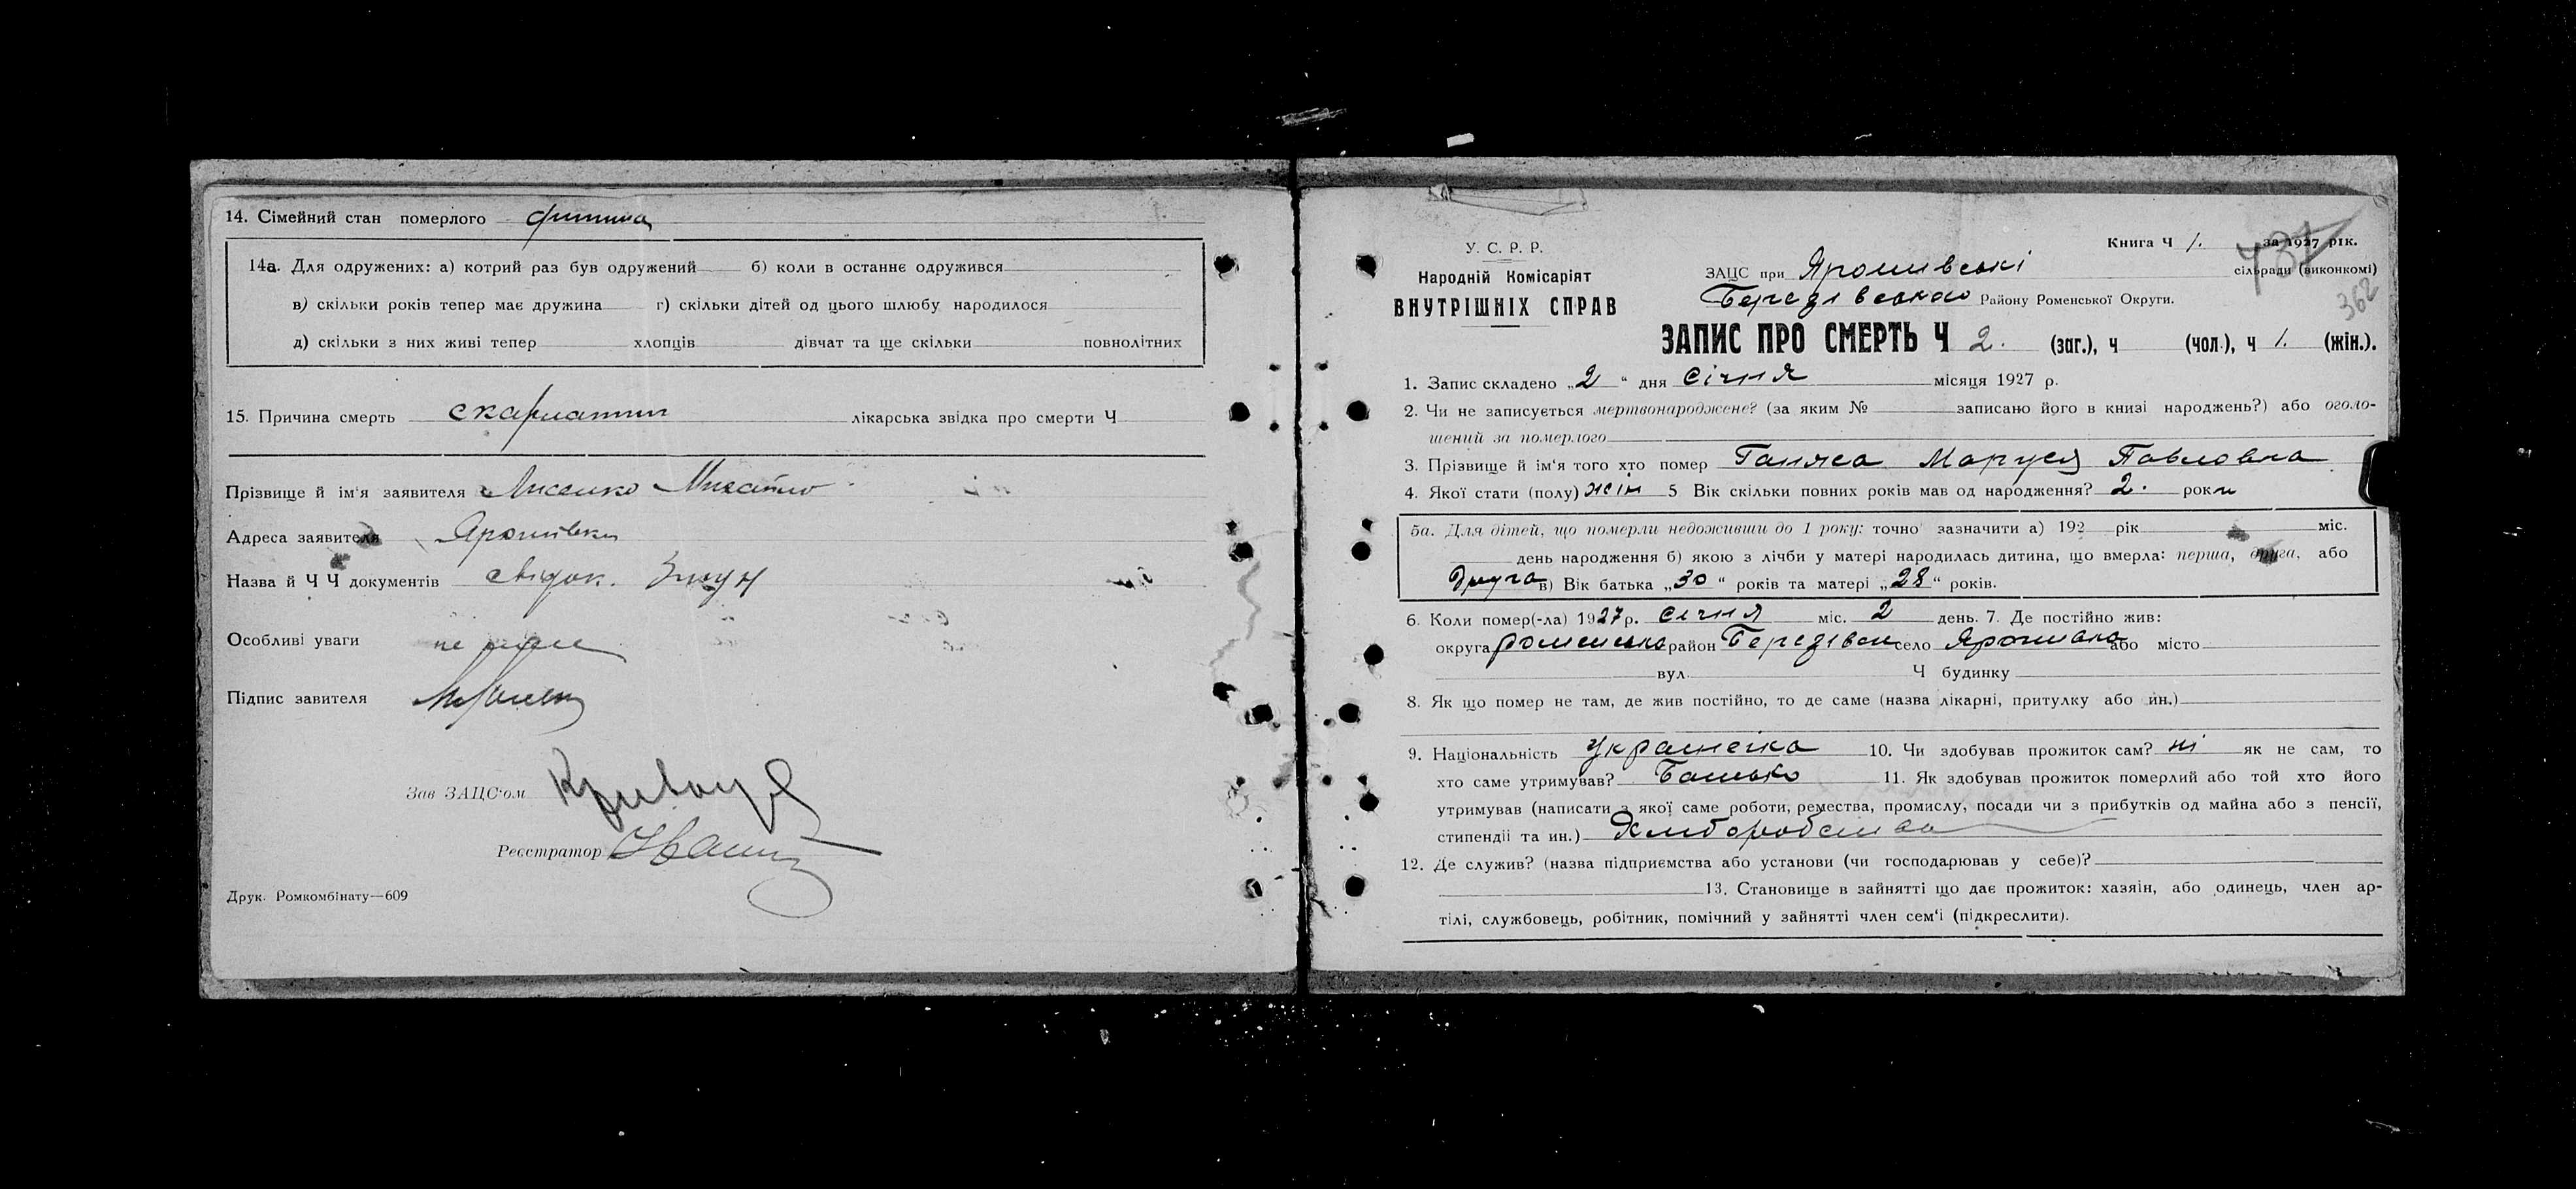 14. Сімейний стан померлого дитина
14а. Для одружених: а) котрий раз був одружений б) коли в останнє одружився
в) скільки років тепер має дружина г) скільки дітей од цього шлюбу народилося
д) скільки з них живі тепер хлопців дівчат та ще скільки повнолітних
15. Причина смерть скарлатин лікарська звідка про смерти Ч
Прізвище й ім'я заявителя Лисенко Михайло
Адреса заявителя Ярошівка
Назва й Ч Ч документів свідок.
Особливі уваги не має
Підпис завителя
Зав ЗАЦС'ом
Реєстратор
Друк. Ромкомбінату—609
437
362
Книга Ч 1. за 1927 рік.
У. С. Р. Р.
Народній Комісаріят
ВНУТРІШНІХ СПРАВ
ЗАЦС при Ярошивські сільради (виконкомі)
Березівського Району Роменської Округи.
ЗАПИС ПРО СМЕРТЬ Ч 2. (заг.), ч (чол.), ч 1. (жін.).
1. Запис складено „2" дня Січня місяця 1927 р.
2. Чи не записується мертвонароджене? (за яким № записано його в книзі народжень?) або оголо-
шений за померлого
3. Прізвище й ім'я того хто помер Ганжа Маруся Павловна
4. Якої стати (полу) жін 5 Вік скільки повних років мав од народження? 2. роки
5а. Для дітей, що померли недоживши до 1 року: точно зазначити а) 192 рік міс.
день народження б) якою з лічби у матері народилась дитина, що вмерла: перша, друга, або
Друга в) Вік батька „30" років та матері „28" років.
6. Коли помер(-ла) 1927 р. Січня міс. 2 день. 7. Де постійно жив:
округа роменська район Березівськ село Ярошивка або місто
вул. Ч будинку
8. Як що помер не там, де жив постійно, то де саме (назва лікарні, притулку або ин.)
9. Національність Українка 10. Чи здобував прожиток сам? ні як не сам, то
хто саме утримував? Батько 11. Як здобував прожиток померлий або той хто його
утримував (написати з якої саме роботи, ремества, промислу, посади чи з прибутків од майна або з пенсії,
стипендії та ин.) Хліборобства
12. Де служив? (назва підприємства або установи (чи господарював у себе)?
13. Становище в зайнятті що дає прожиток: хазяїн, або одинець, член ар-
тілі, службовець, робітник, помічний у зайнятті член сем'ї (підкреслити).